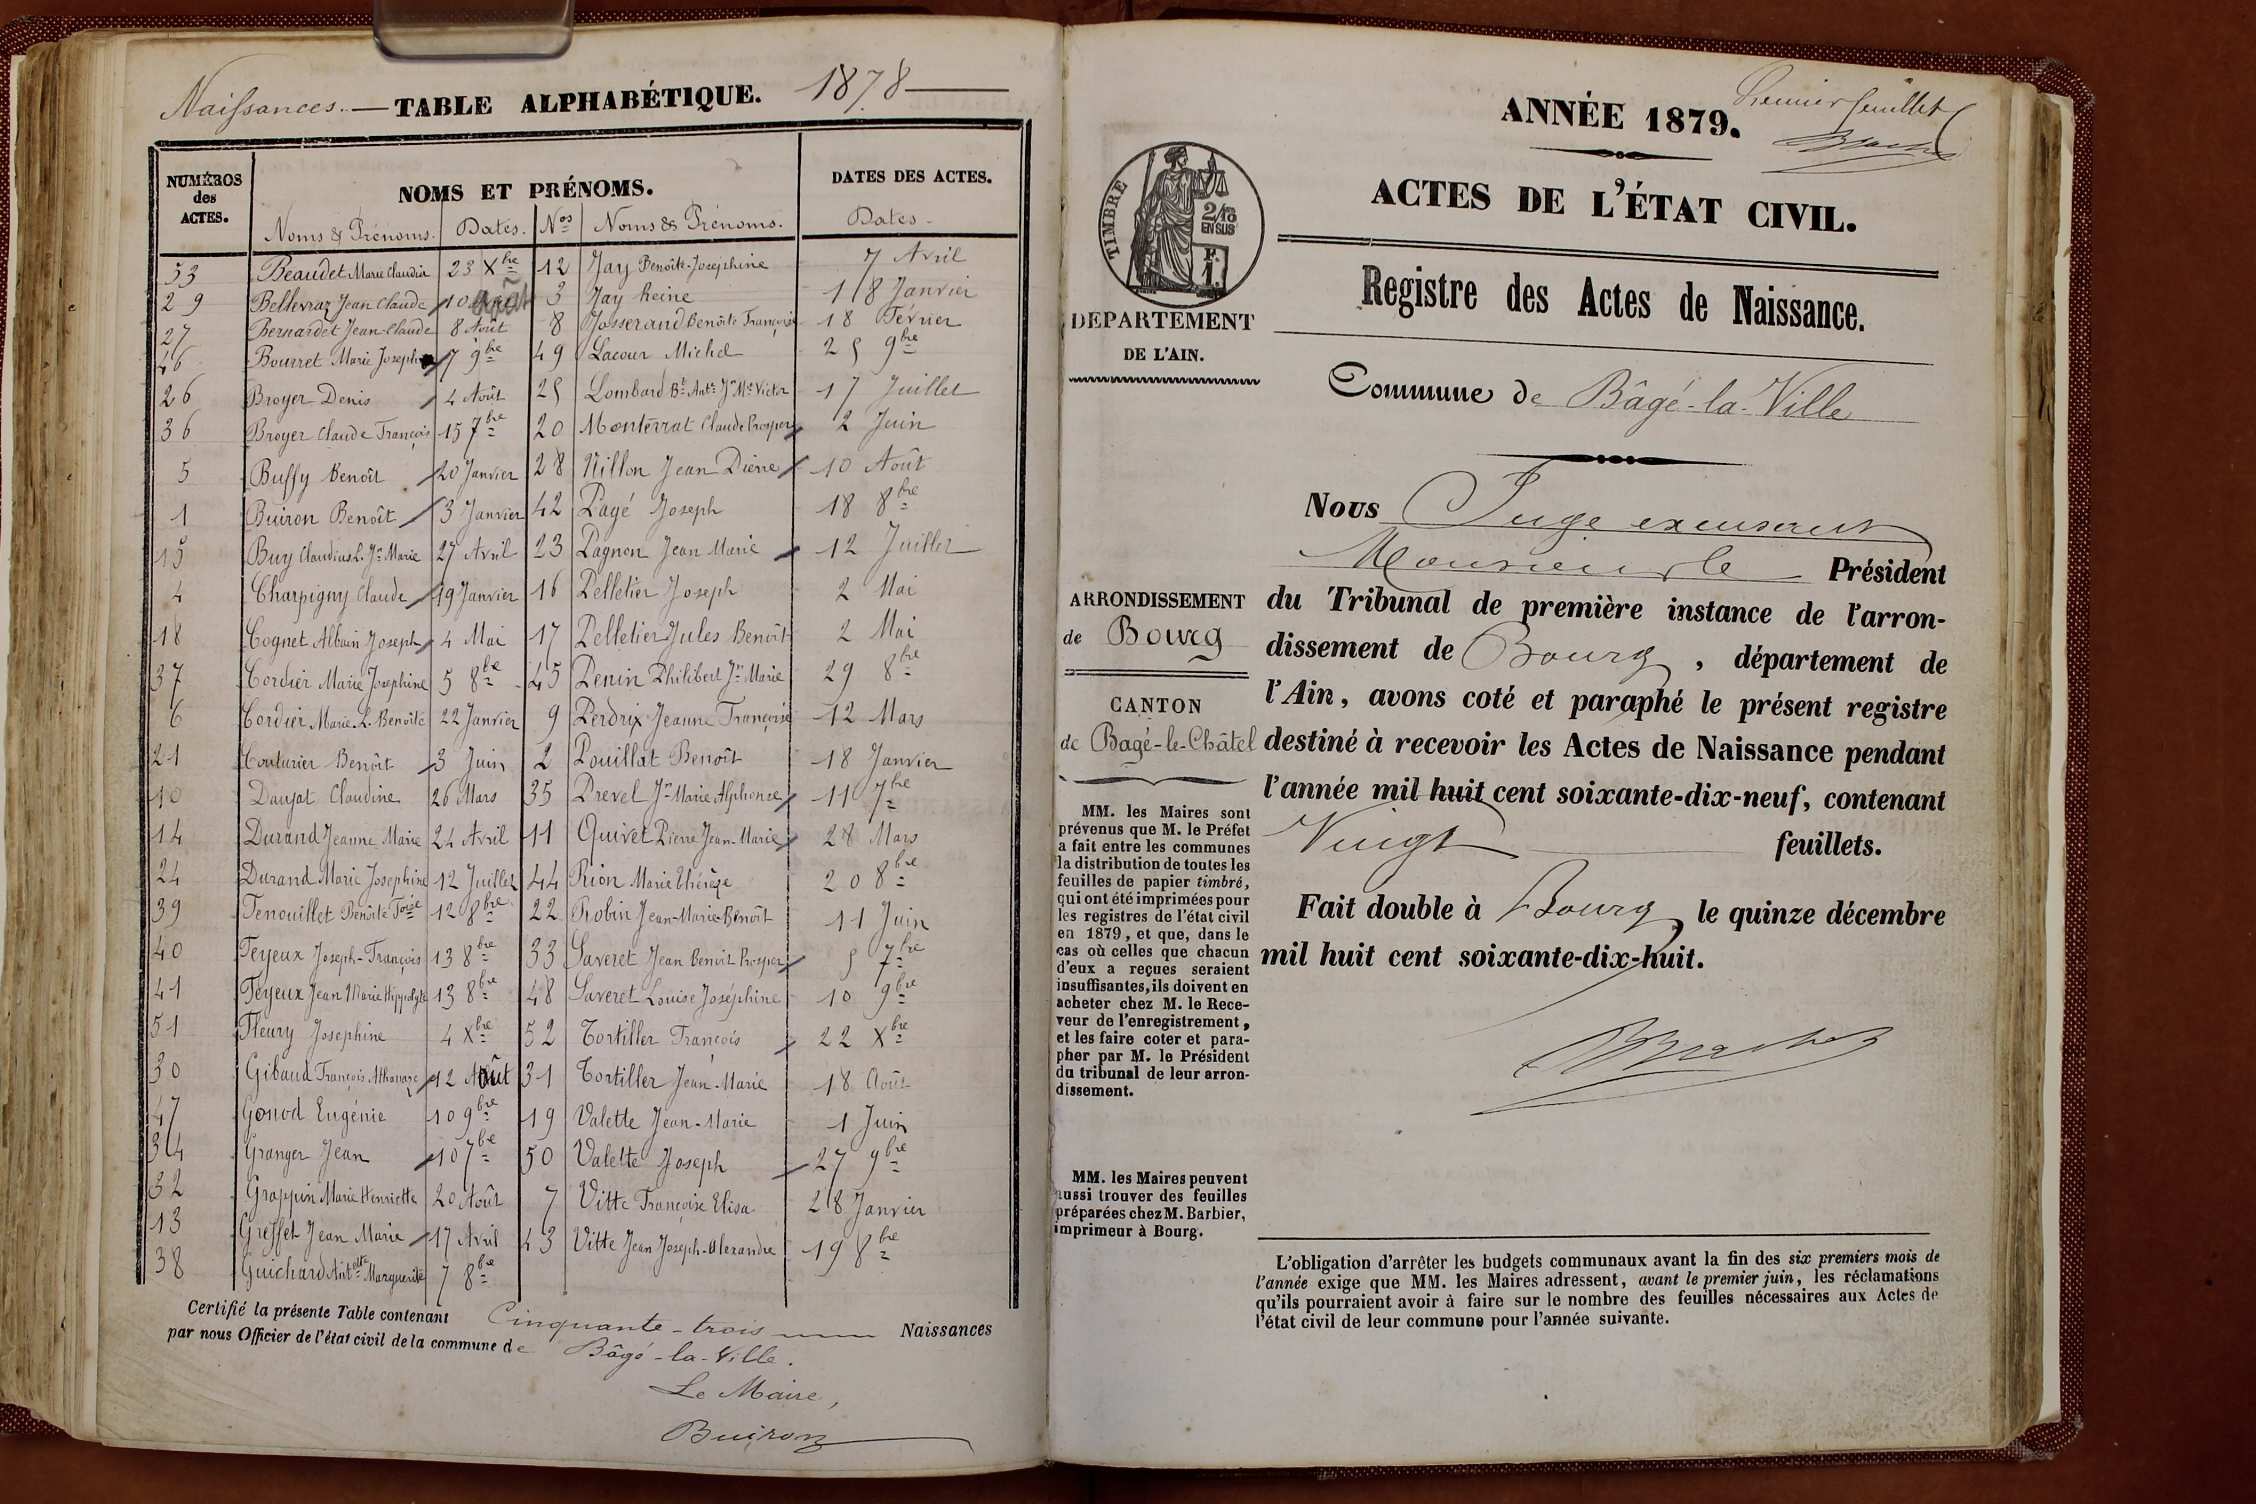 Naissances. — TABLE ALPHABÉTIQUE. 1878 —
NUMÉROS des ACTES. NOMS ET PRÉNOMS. DATES DES ACTES.
Noms & Prénoms. Dates. Nos Noms & Prénoms. Dates.
53 Beaudet Marie Claudia 23 Xbre 12 Jay Benoîte-Joséphine 7 Avril
29 Bellevraz Jean Claude 10 Août 3 Jay Reine 18 Janvier
27 Bernardet Jean-Claude 8 Août 8 Josserand Benoîte Françoise 18 Février
46 Bourret Marie Joseph 7 9bre 49 Lacour Michel 25 9bre
26 Broyer Denis 4 Août 25 Lombard Bt Ante Jn Me Victor 17 Juillet
36 Broyer Claude François 15 7bre 20 Monterrat Claude Prosper 2 Juin
5 Buffy Benoît 20 Janvier 28 Nillon Jean Pierre 10 Août
1 Buiron Benoît 3 Janvier 42 Pagé Joseph 18 8bre
15 Buy Claudius L. Jn Marie 27 Avril 23 Pagnon Jean Marie 12 Juillet
4 Charpigny Claude 19 Janvier 16 Pelletier Joseph 2 Mai
18 Cognet Alban Joseph 4 Mai 17 Pelletier Jules Benoît 2 Mai
37 Cordier Marie Joséphine 5 8bre 45 Penin Philibert Jn Marie 29 8bre
6 Cordier Marie-L. Benoîte 22 Janvier 9 Perdrix Jeanne Françoise 12 Mars
21 Couturier Benoît 3 Juin 2 Pouillat Benoît 18 Janvier
10 Daujat Claudine 26 Mars 35 Prevel Jn Marie Alphonse 11 7bre
14 Durand Jeanne Marie 24 Avril 11 Quivet Pierre Jean-Marie 28 Mars
24 Durand Marie Josephine 12 Juillet 44 Rion Marie Thérèze 20 8bre
39 Fenouillet Benoîte Foise 12 8bre 22 Robin Jean-Marie-Benoît 11 Juin
40 Feyeux Joseph-François 13 8bre 33 Saveret Jean Benoit Prosper 5 7bre
41 Feyeux Jean Marie Hippolyte 13 8bre 48 Saveret Louise Joséphine 10 9bre
51 Fleury Josephine 4 Xbre 52 Tortiller François 22 Xbre
30 Gibaud François Athanase 12 Août 31 Tortiller Jean-Marie 18 Août
47 Gonod Eugénie 10 9bre 19 Valette Jean-Marie 1 Juin
34 Granger Jean 10 7bre 50 Valette Joseph 27 9bre
32 Grappin Marie Henriette 20 Août 7 Vitte Françoise Elisa 28 Janvier
13 Greffet Jean Marie 17 Avril 43 Vitte Jean Joseph-Alexandre 19 8bre
38 Guichard Antelte Marguerite 7 8bre
Certifié la présente Table contenant Cinquante-trois Naissances
par nous Officier de l'état civil de la commune de Bâgé-la-Ville.
Le Maire,
Buiron
Premier feuillet
ANNÉE 1879.
ACTES DE L'ÉTAT CIVIL.
TIMBRE
2/10 EN SUS
F. 1.
DÉPARTEMENT
DE L'AIN.
Registre des Actes de Naissance.
Commune de Bâgé-la-Ville
ARRONDISSEMENT
de Bourg
CANTON
de Bagé-le-Châtel
MM. les Maires sont
prévenus que M. le Préfet
a fait entre les communes
la distribution de toutes les
feuilles de papier timbré,
qui ont été imprimées pour
les registres de l'état civil
en 1879, et que, dans le
cas où celles que chacun
d'eux a reçues seraient
insuffisantes, ils doivent en
acheter chez M. le Rece-
veur de l'enregistrement,
et les faire coter et para-
pher par M. le Président
du tribunal de leur arron-
dissement.
MM. les Maires peuvent
aussi trouver des feuilles
préparées chez M. Barbier,
imprimeur à Bourg.
Nous Juge excusant
Monsieur le Président
du Tribunal de première instance de l'arron-
dissement de Bourg, département de
l'Ain, avons coté et paraphé le présent registre
destiné à recevoir les Actes de Naissance pendant
l'année mil huit cent soixante-dix-neuf, contenant
Vingt feuillets.
Fait double à Bourg, le quinze décembre
mil huit cent soixante-dix-huit.
L'obligation d'arrêter les budgets communaux avant la fin des six premiers mois de
l'année exige que MM. les Maires adressent, avant le premier juin, les réclamations
qu'ils pourraient avoir à faire sur le nombre des feuilles nécessaires aux Actes de
l'état civil de leur commune pour l'année suivante.